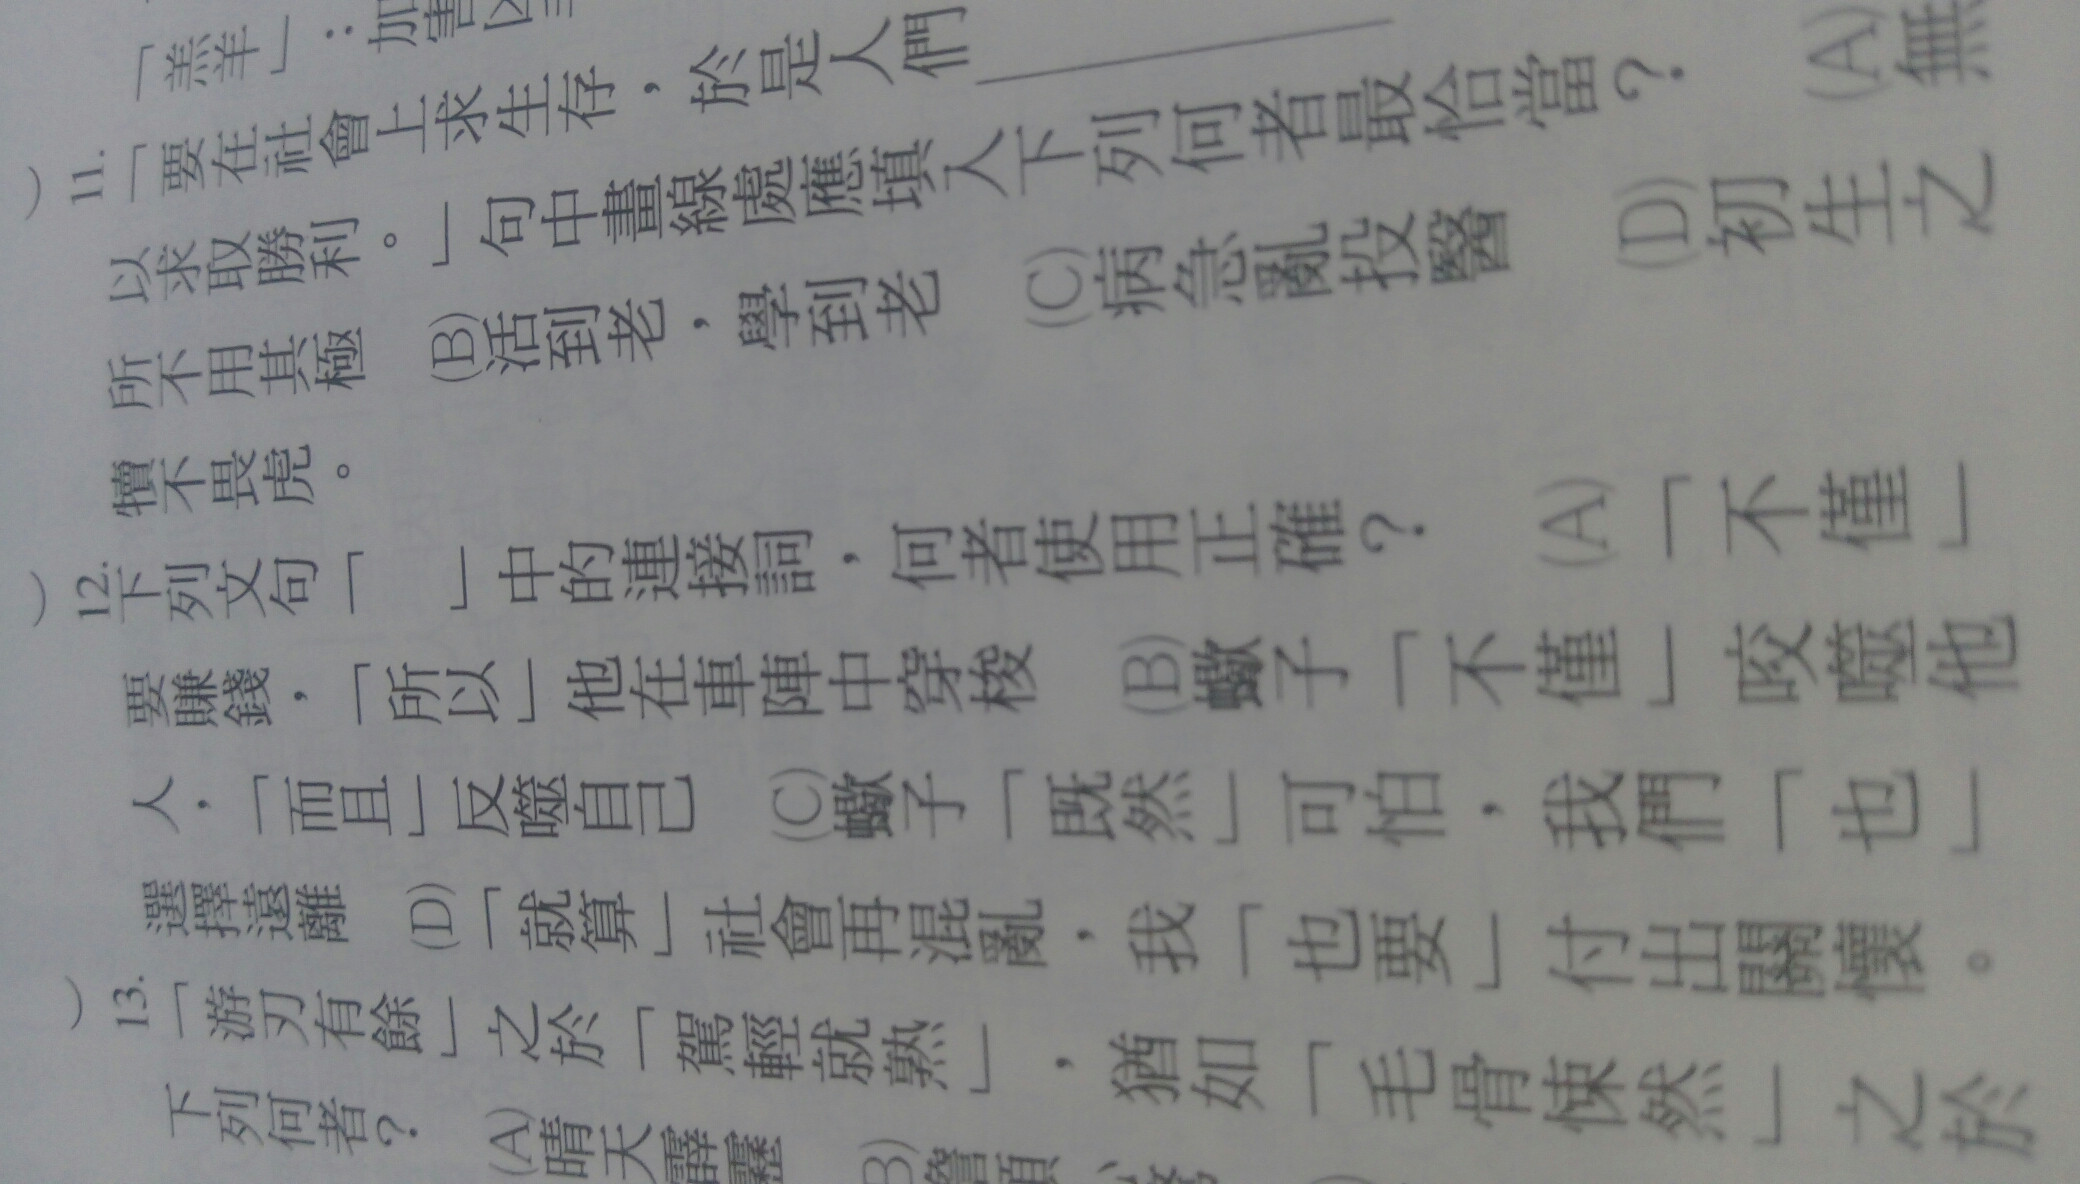 「羔羊」：加害
11.「要在社會上求生存，於是人們
以求取勝利。」句中畫線處應填入下列何者最恰當？ (A)無
所不用其極 (B)活到老，學到老 (C)病急亂投醫 (D)初生之
犢不畏虎。
12.下列文句「 」中的連接詞，何者使用正確？ (A)「不僅」
要賺錢，「所以」他在車陣中穿梭 (B)蠍子「不僅」咬噬他
人，「而且」反噬自己 (C)蠍子「既然」可怕，我們「也」
選擇遠離 (D)「就算」社會再混亂，我「也要」付出關懷。
13.「游刃有餘」之於「駕輕就熟」，猶如「毛骨悚然」之於
下列何者？ (A)晴天霹靂